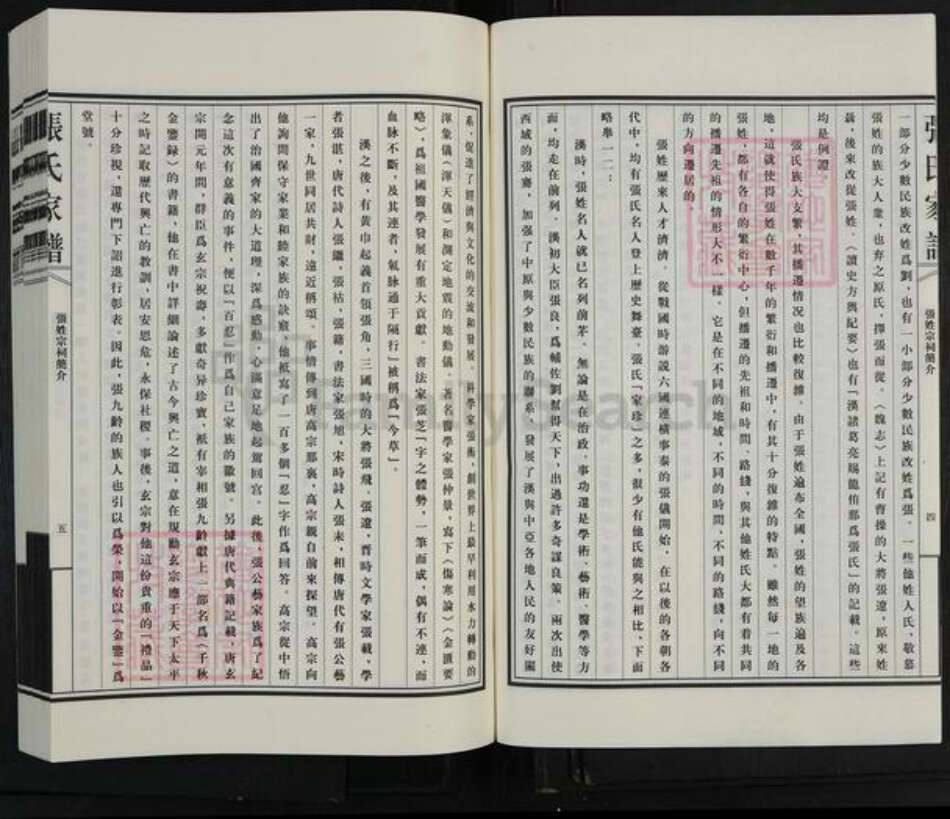 張氏家譜
張姓宗祠簡介
四
一部分少數民族改姓爲劉,也有一小部分少數民族改姓爲張。一些他姓人氏,敬慕
張姓的族大人衆,也弃之原氏,擇張而從。《魏志》上記有曹操的大將張遼,原來姓
聶,後來改從張姓。《讀史方輿紀要》也有「漢諸葛亮賜龍佑那爲張氏」的記載。這些
均是例證。
張氏族大支繁,其播遷情况也比較復雜。由于張姓遍布全國,張姓的望族遍及各
地,這就使得張姓在數千年的繁衍和播遷中,有其十分復雜的特點。雖然每一地的
張姓,都有各自的繁衍中心,但播遷的先祖和時間、路綫,與其他姓氏大都有着共同
的播遷先祖的情形大不一樣。它是在不同的地域,不同的時間,不同的路綫,向不同
的方向遷居的。
張姓歷來人才濟濟。從戰國時游説六國連橫事秦的張儀開始,在以後的各朝各
代中,均有張氏名人登上歷史舞臺。張氏「家珍」之多,很少有他氏能與之相比,下面
略舉一二:
漢時,張姓名人就已名列前茅。無論是在治政、事功還是學術、藝術、醫學等方
面,均走在前列。漢初大臣張良,爲輔佐劉幫得天下,出過許多奇謀良策。兩次出使
西域的張騫,加强了中原與少數民族的聯系,發展了漢與中亞各地人民的友好關
系,促進了經濟與文化的交流和發展。科學家張衡,創世界上最早利用水力轉動的
渾象儀(渾天儀)和測定地震的地動儀。著名醫學家張仲景,寫下《傷寒論》《金匱要
略》,爲祖國醫學發展有重大貢獻。書法家張芝「字之體勢,一筆而成,偶有不連,而
血脉不斷,及其連者,氣脉通于隔行」被稱爲「今草」。
漢之後,有黃巾起義首領張角,三國時的大將張飛、張遼,晋時文學家張載,學
者張湛,唐代詩人張繼、張祜、張籍,書法家張旭,宋時詩人張耒,相傳唐代有張公藝
一家,九世同居共財,遠近稱頌。事情傳到唐高宗那裏,高宗親自前來探望。高宗向
他詢問保守家業和睦家族的訣竅,他衹寫了一百多個「忍」字作爲回答。高宗從中悟
出了治國齊家的大道理,深爲感動,心滿意足地起駕回宮。此後,張公藝家族爲了紀
念這次有意義的事件,便以「百忍」作爲自己家族的徽號。另據唐代典籍記載,唐玄
宗開元年間,群臣爲玄宗祝壽,多獻奇异珍寶,衹有宰相張九齡獻上一部名爲《千秋
金鑒録》的書籍,他在書中詳細論述了古今興亡之道,意在規勸玄宗應于天下太平
之時記取歷代興亡的教訓,居安思危,永保社稷。事後,玄宗對他這份貴重的「禮品」
十分珍視,還專門下詔進行彰表。因此,張九齡的族人也引以爲榮,開始以「金鑒」爲
堂號。
張氏家譜
張姓宗祠簡介
五
FamilySearch